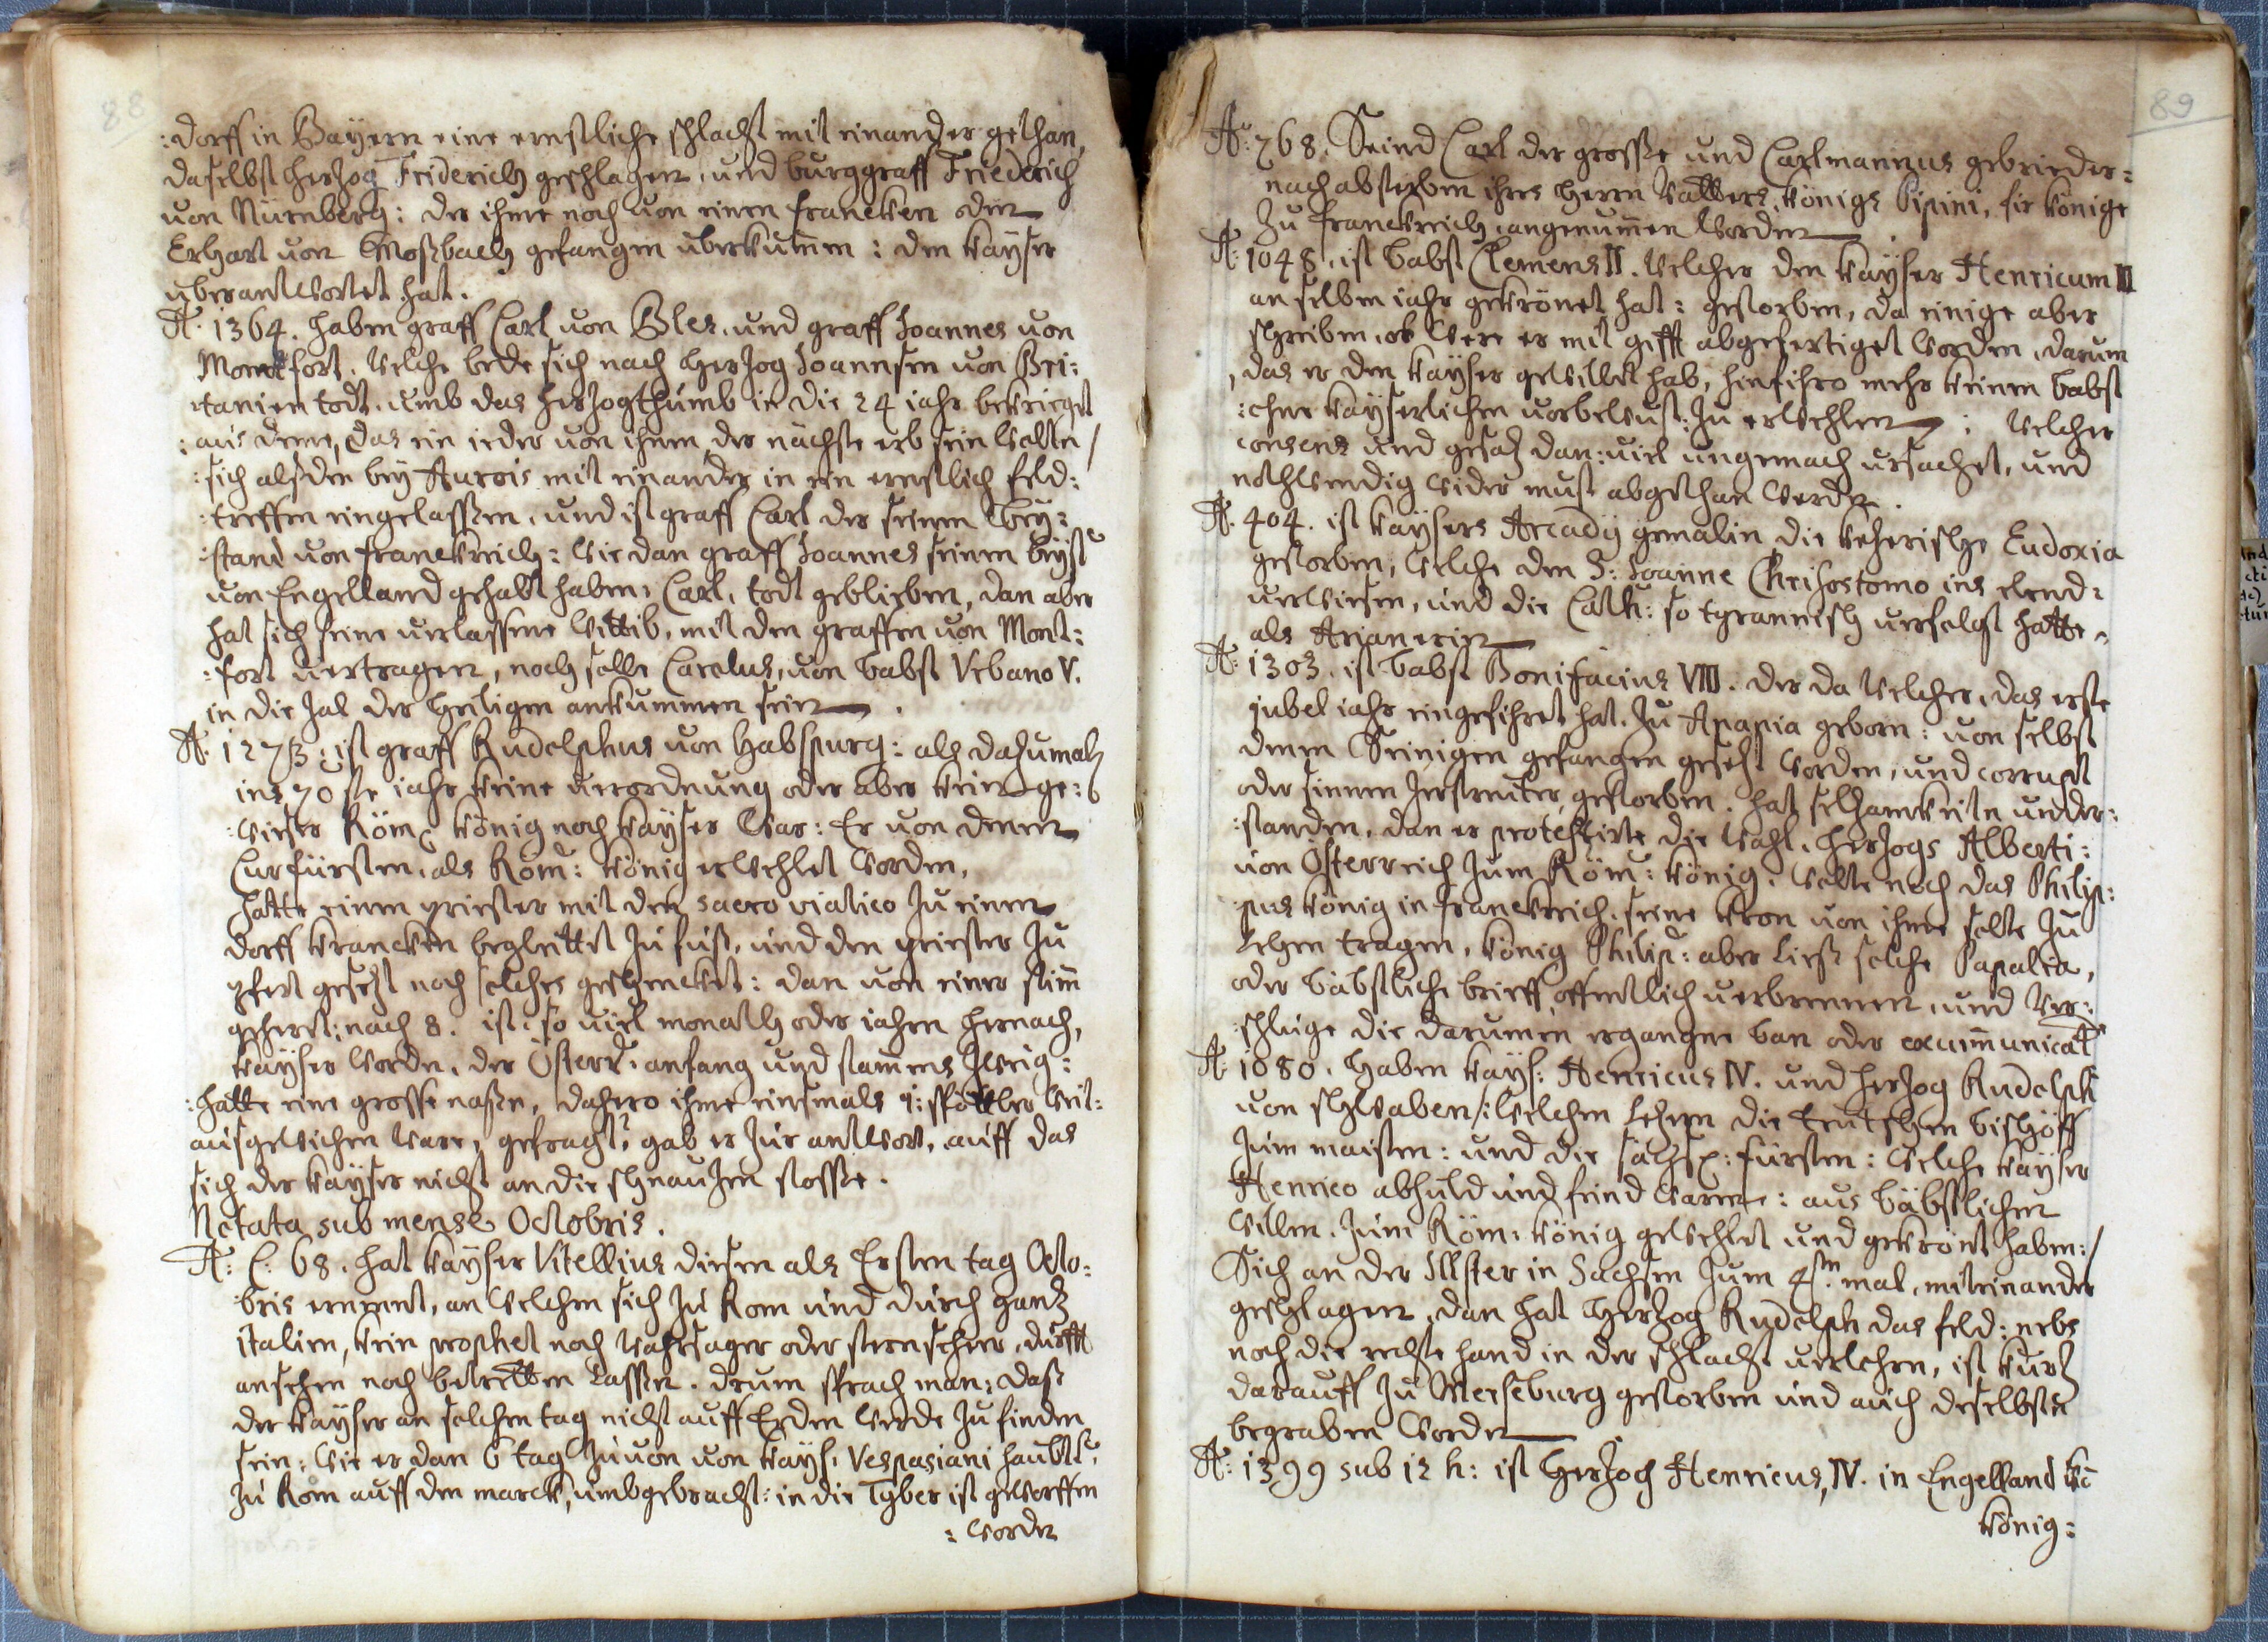 88
:dorff in Bayern eine ernstliche schlacht mit einander gethan,
daselbst herzog Friderich geschlagen, und burggraff Friederich
von Nürnberg: der ihme noch von einen francken den
Erhart von Moßbach gefangen uberkumen: den kayser
uberantwortet hat.
A: 1364. haben graff Carl von Bles, und graff Joannes von
Montfort. welche bede sich nach herzog Joannsen von Bri:
:tanien todt, umb das herzogthumb in die 24 iahr bekrieget
:aus deme, das ein ieder von ihnen der nächste erb sein wolte /
:sich alßden bey Aurois mit einander in ein ernstlich feld:
:treffen eingelassen, und ist graff Carl der seinen bey:
:stand von franckreich: wie dan graff Joannes seinen beyst
von Engelland gehabt haben, Carl, todt geblieben, dan aber
hat sich seine verlassene wittib, mit den graffen von Mont:
:fort vertragen, noch solle Carolus, von babst Vrbano V.
in die zal der heiligen ankummen sein.
A: 1273: ist graff Rudolphus von Habspurg: als dazumals
ins 70ste iahr keine verordnung oder aber kein ge:
:wieser Röm: könig noch kayser war: Er von denen
Curfürsten, als Röm: könig erwehlet worden,
hatte einen priester mit den sacro viatico zu einen
dorff krancken begleittet zu fuß, und den priester zu
pfert gesetzt noch solches geschencket: dan von einer stim
gehöret: nach 8. ist: so viel monath oder iahren hernach,
kayser worden, der Österr: anfang und stamens zweig:
:hatte eine grosse nasen, dahero ihme einsmals i: spöttler weit:
ausgewichen ware, gefragt? gab er zur antwort, auff das
sich der kayser nicht an die schnauzen stosse.
Notata sub mense Octobris.
A: C. 68. hat kayser Vitellius diesen als Ersten tag Octo:
:bris ernennt, an welchen sich zu Rom und durch gantz
italien, kein prophet noch wahrsager oder sternseher, durfft
ansehen noch betretten lassen. drum sprach man: daß
der kayser an solchen tag nicht auff Erden werde zu finden
sein: wie er dan 6 tag zuvon von kays. Vespasiani haubtl:
zu Rom auff den marckt, umbgebracht: in die Tyber ist geworffen
: worden
89
A: 768. Seind Carl der grosse und Carlmannus gebrieder:
nach absterben ihres herrn vatters, königs Pipini, fir könige
zu franckreich, angenumen worden.
A: 1048. ist babst Clemens II. welcher den kayser Henricum III
an selben iahr gekrönet hat: gestorben, da einige aber
schreiben, ob were er mit gifft abgefertiget worden, darum
, das er den kayser gewillet hab, hinfihro mehr keinen babst
:ohne kayserlichen vorbewust: zu erwehlen: welcher
consens und gesatz dan: viel ungemach ursachet, und
nothwendig wider must abgethan werden.
A. 404. ist kaysers Arcady gemalin die ketzerische Eudoxia
gestorben, welche den S: Joanne Chrisostomo ins elend:
verwiesen, und die Cath: so tyrannisch verfolgt hatte
als Arianerin
A: 1303. ist babst Bonifacius VIII. der da welcher, das erste
jubel iahr eingefihret hat. zu Anania geborn: von selbst
denen Seinigen gefangen gesetzt worden, und corrupt
oder sinnen zerstreiter, gestorben. hat selzamkeiten under:
:standen, dan er protestirte die wahl, herzogs Alberti:
von Österreich zum Röm: könig. wolte noch das Philip:
:pus könig in franckreich, seine kron von ihme solte zu
Lehen tragen, könig Philip: aber ließ solche Papalia,
oder bäbstliche brieff, offentlich verbrennen, und ver:
:schluge die darumen ergangne ban oder excumunicat:
A: 1080. haben kays: Henricus IV. und herzog Rudolph
von schwaben /: welchen Lehren die teutschen bischöff
zum maisten: und die sachsß: fürsten: welche kayser
Henrico abhuld und feind waren: aus bäbstlichen
willen, zum Röm: könig gewehlet und gekrönt haben: /
Sich an der Ellster in Sachsen zum 4ten mal, mit einander
geschlagen, dan hat herzog Rudolph das feld: nebs
noch die rechte hand in der schlacht verlohren, ist kurtz
darauff zu Merseburg gestorben und auch deselbsten
begraben worden.
A: 1399 sub 12 h: ist herzog Henricus, IV. in Engelland kö
könig: